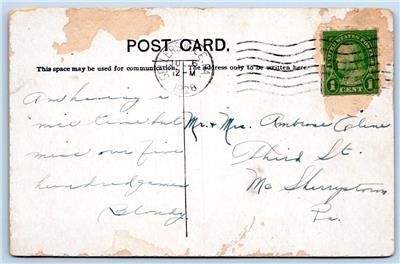 POST CARD.
This space may be used for communication. The address only to be written here.
12-M
1928
UNITED STATES POSTAGE
1 CENT 1
Am having a
nice time but
miss our five
hundred games
Blondy.
Mr. & Mrs. Ambrose Cline
Third St.
Mc Sherrystown
Pa.